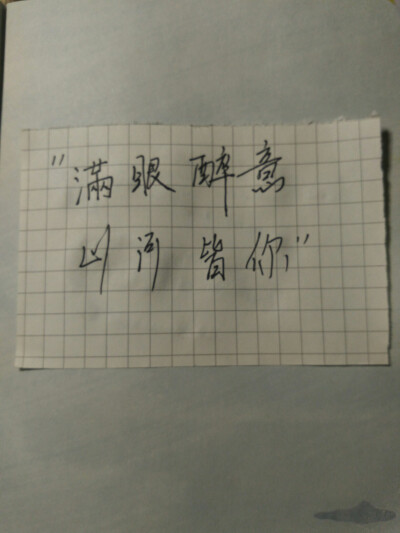 "滿眼醉意
山河皆你"